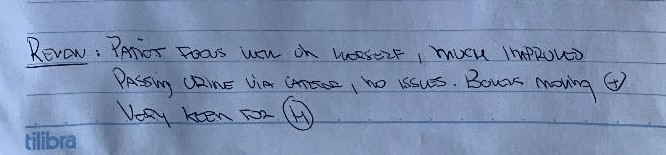 REVIEW: PATIENT FEELS WELL IN HERSELF, MUCH IMPROVED
PASSING URINE VIA CATHETER, NO ISSUES. BOWELS MOVING +
VERY KEEN FOR H
tilibra